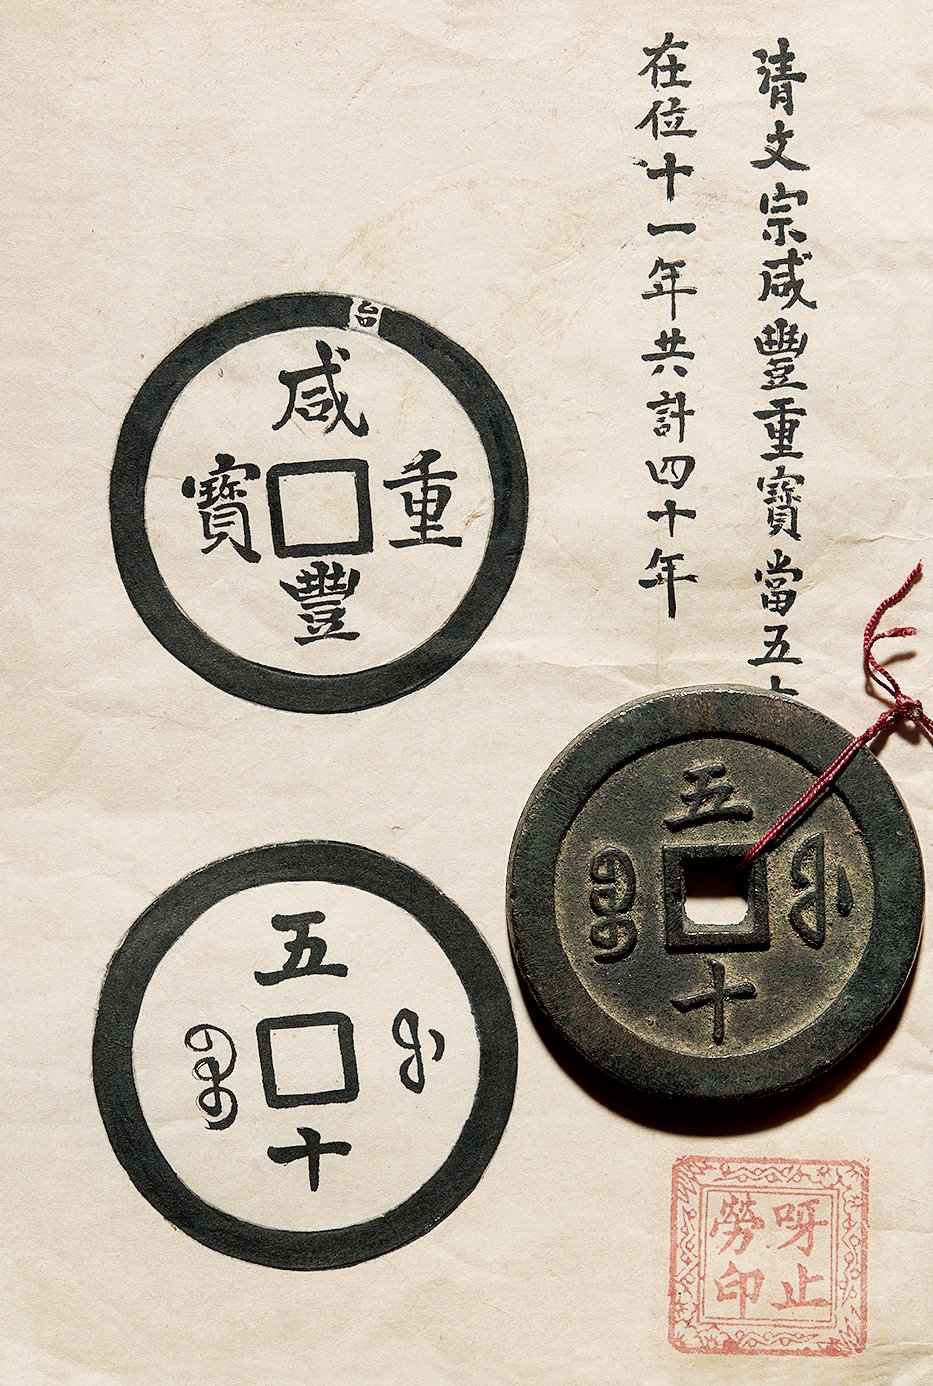 清文宗咸豐重寶當五
在位十一年共計四十年
咸豐重寶
五十
五十
呀止勞印